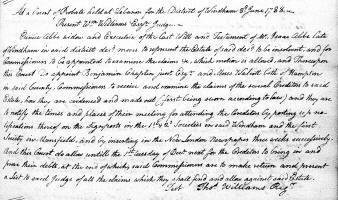 At a Court of Probate held at Lebanon for the District of Windham 3d June 1788.
Present Wm Williams Esqr Judge
Eunice Abbe widow and Executrix of the Last Will and Testament of Mr Isaac Abbe Late
of Windham in said district decd moves to represent the Estate of said decd to be insolvent, and for
Commissioners to be appointed to examine the claims &c. which motion is allowed, and Thereupon
this Court do appoint Benjamin Chaplin junr Esqr and Moses Walcott both of Hampton
in said County Commissioners to receive and examine the claims of the several Creditors to said
Estate, how they are evidenced and made out (first being sworn according to law) and they are
to notify the times and places of their meeting for attending the Creditors by posting up
notifications thereof on the Signposts in the 1st & 2d Societies in said Windham and the first
Society in Mansfield, and by inserting in the New London Newspaper three weeks successively.
and this Court do allow untill the 1st tuesday of next for the Creditors to bring in and
prove their debts, at the end of which said Commissioners are to make return and present
a List to said Judge of all the claims which they shall find and allow against said Estate.
Test Thos Williams Regr